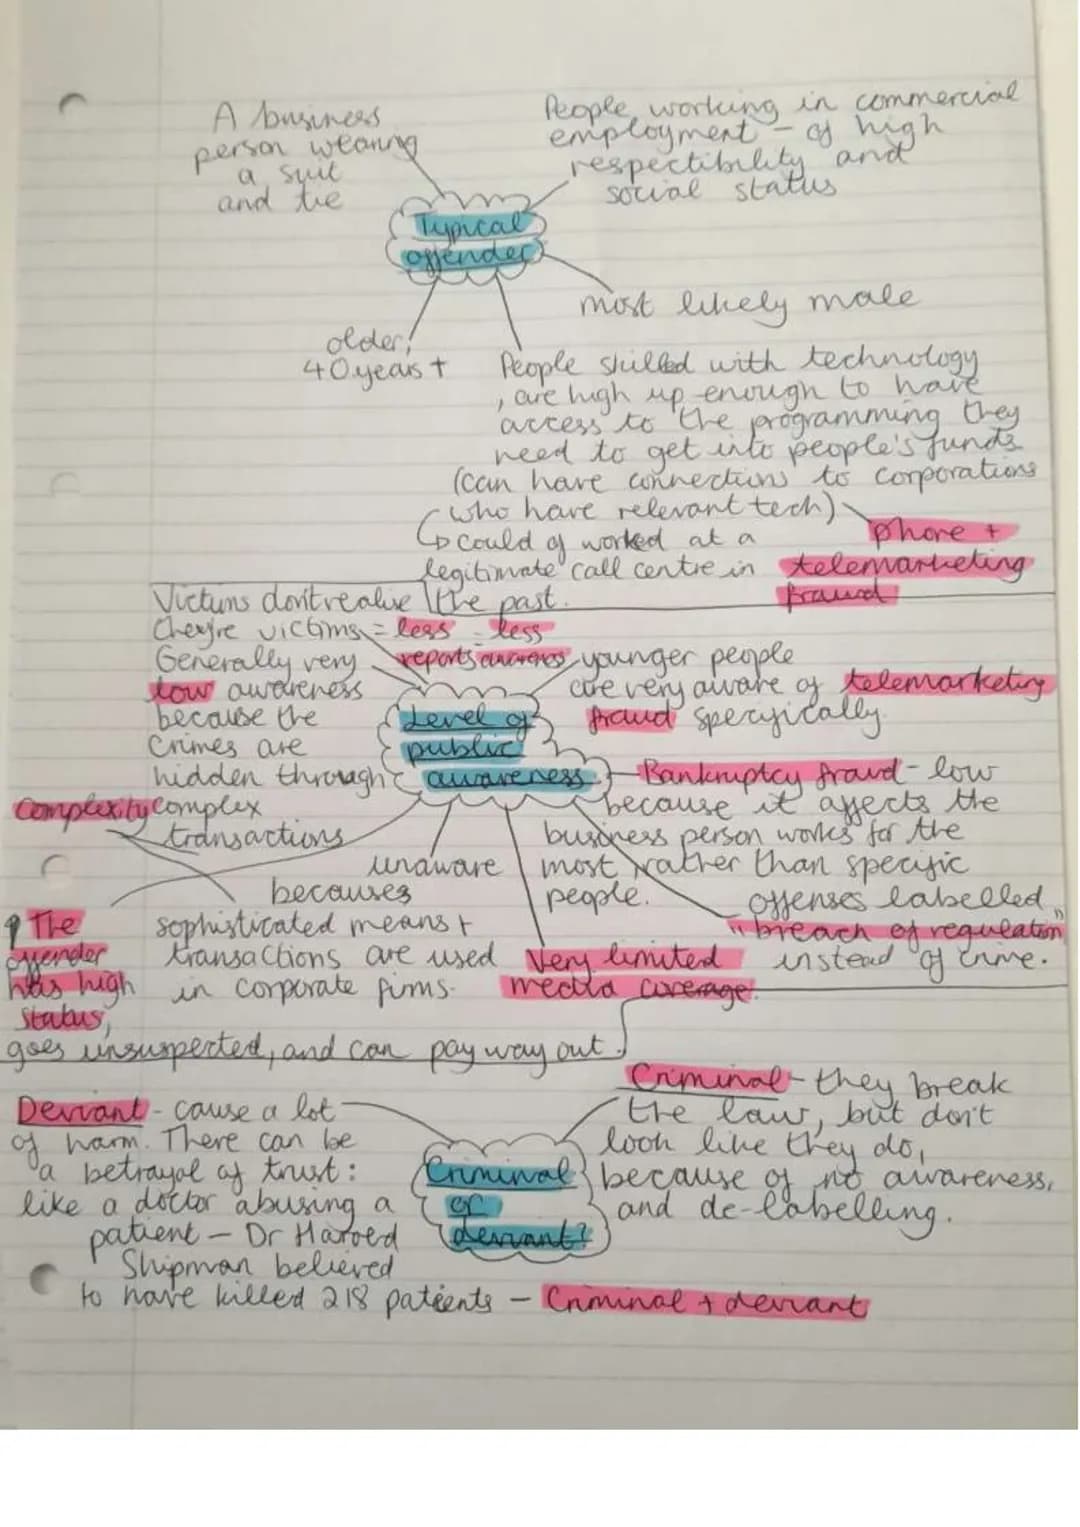 A business
person wearing
a suit
and tie
People working in commercial
employment - of high
respectibility and
social status
Typical
offender
most likely male
older,
40 years +
People skilled with technology
, are high up enough to have
access to the programming they
need to get into people's funds
(can have connections to corporations
who have relevant tech)
↳ could of worked at a
legitimate call centre in
the past.
phone +
telemarketing
fraud
Victims don't realise
they're victims = less = less
reports awareness
Generally very
low awareness
because the
crimes are
hidden through
complex
transactions
Complexity
Level of
public
awareness
younger people
are very aware of telemarketing
fraud specifically.
Bankruptcy fraud - low
because it affects the
business person works for the
most rather than specific
people.
unaware
becauses
sophisticated means +
transactions are used
in corporate firms.
Very limited
media coverage.
offenses labelled
"breach of regulation"
instead of crime.
The
offender
has high
status,
goes unsuspected, and can pay way out.
Criminal - they break
the law, but don't
look like they do,
because of no awareness,
and de-labelling.
Criminal
or
deviant?
Deviant - cause a lot
of harm. There can be
a betrayal of trust:
like a doctor abusing a
patient - Dr Harold
Shipman believed
to have killed 218 patients - Criminal + deviant